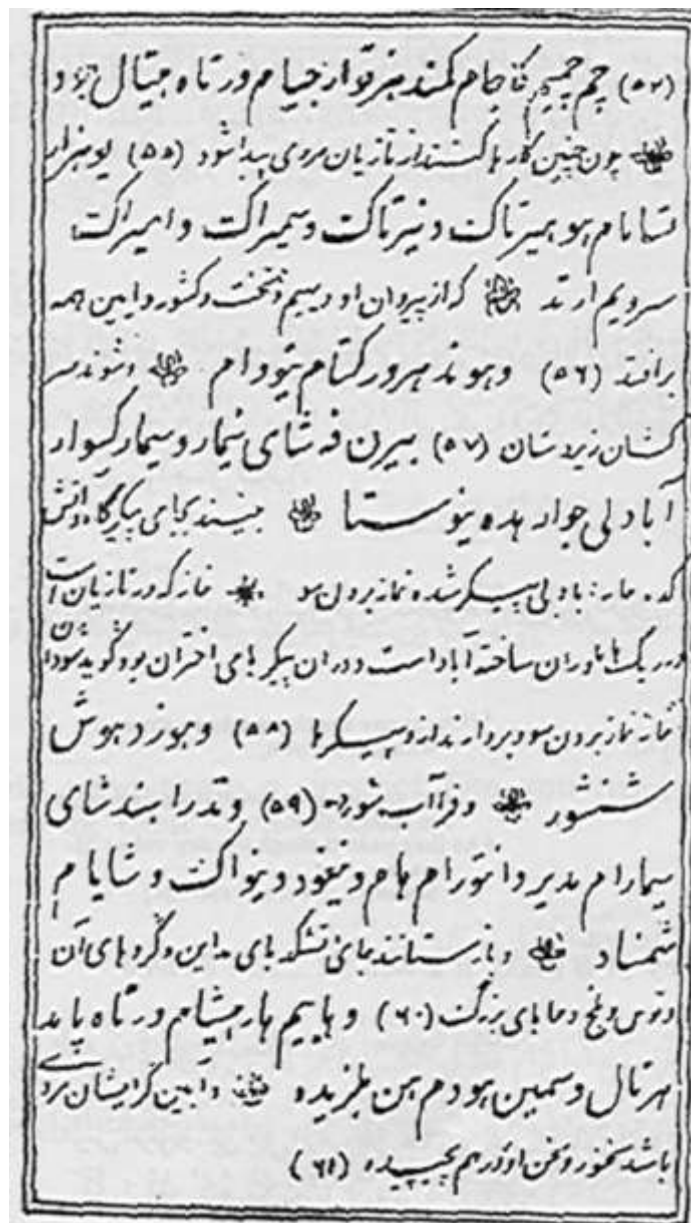 (۵۴) چم چمیم کاجام کمند هزتوار جیام ورتاه هیتال بود
چون چنین کارها کنند از تازیان مردی پیدا شود (۵۵) یوهزار
فسامام هو همیرتاک و نیرتاک و سمیراک و امیراک
سرویم ارتد که از پیروان او دیهیم و تخت و کشور و آیین همه
برافتد (۵۶) و هوند هرور کتام تیودام و شوند سر
کشان زیردستان (۵۷) بیرن فه شای نیمار و سیمار کسوار
آباد لی جوار هده ینوستا بینند بجای پیکرگاه و آتش
کده خانه آباد بی پیکر شده نماز بردن سو خانه که در تازیان است
در ریگ هاماوران ساخته آباد است و در آن پیکرهای اختران بود گوید سودا
خانه نماز بردن سود بردارند ازو پیکرها (۵۸) و هوزد هوش
ششور و فراآب شوره (۵۹) و تدرا بند شای
سیمارام مدیر و انتورام هام و نیغود و ینواکت و شایام
شمناد و باز ستانند جای آتشکدهای مداین و گردهای آن
و توس و بلخ و جاهای بزرگ (۶۰) و هاییم هار هشام ورتاه پاید
هرتال و سمین هودم هن طزیده و آیین گرایشان مردی
باشد سخنور و سخن او درهم پیچیده (۶۱)